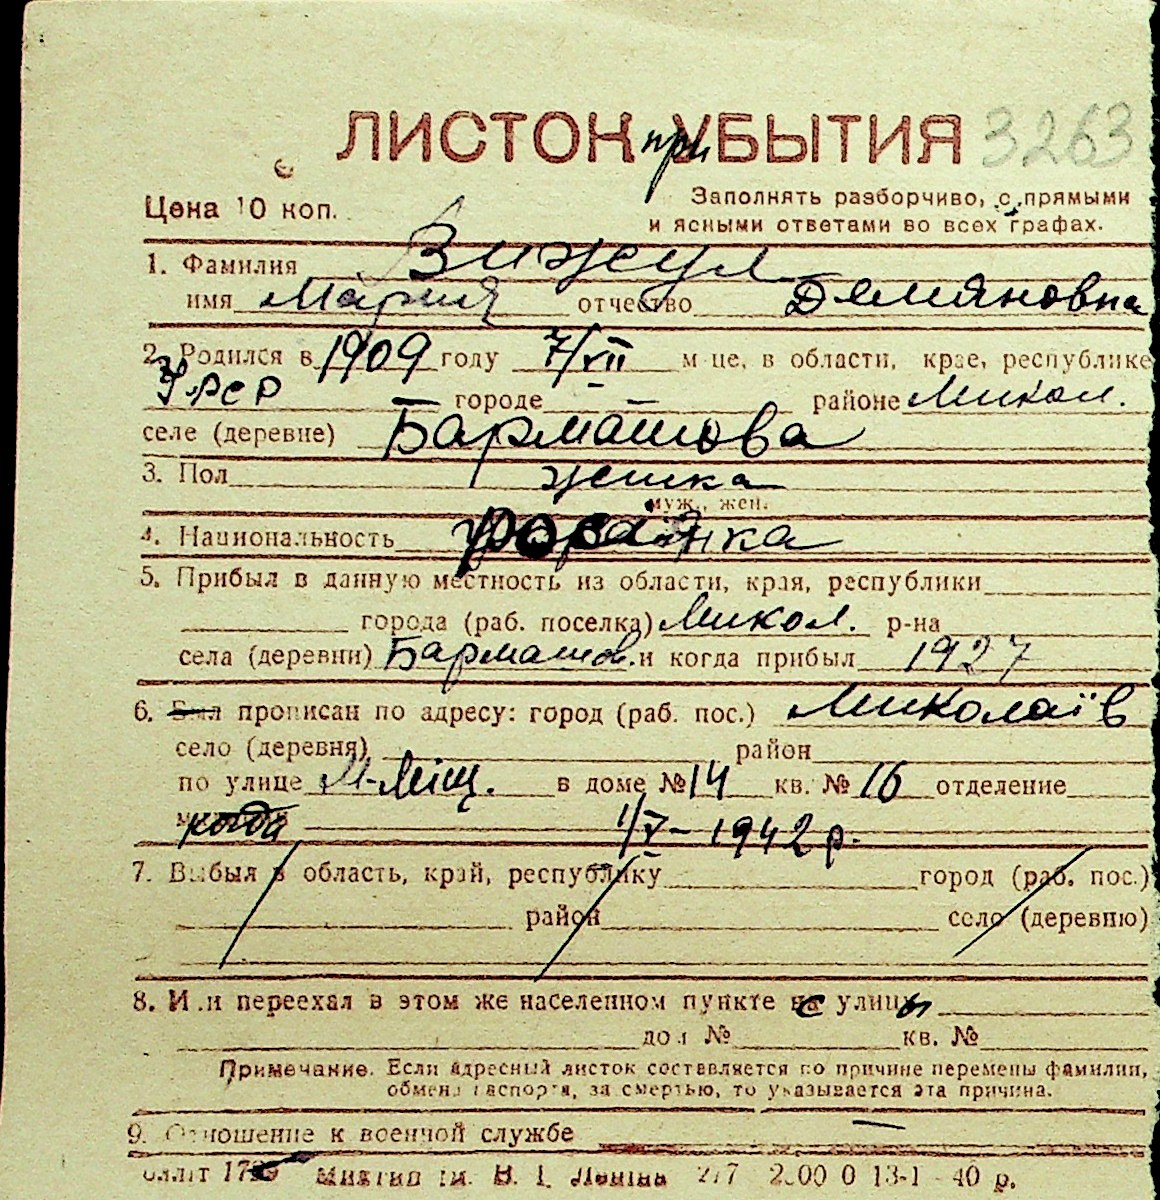 ЛИСТОК при УБЫТИЯ 3263
Цена 10 коп.
Заполнять разборчиво, с прямыми
и ясными ответами во всех графах.
1. Фамилия Вижул
имя Мария отчество Демяновна
2. Родился в 1909 году 7/VII м-це, в области, крае, республике
УРСР — городе — районе Микол.
селе (деревне) Бармашова
3. Пол жинка
муж., жен.
4. Национальность
5. Прибыл в данную местность из области, края, республики
города (раб. поселка) Микол. р-на
села (деревни) Бармашов. и когда прибыл 1927
6. Был прописан по адресу: город (раб. пос.) Миколаїв
село (деревня) район
по улице М-Міщ. в доме № 14 кв. № 16 отделение
1/V - 1942 р.
7. Выбыл в область, край, республику город (раб. пос.)
район село (деревню)
8. Или переехал в этом же населенном пункте с улицы
дом № кв. №
Примечание. Если адресный листок составляется по причине перемены фамилии,
обмена паспорта, за смертью, то указывается эта причина.
9. Отношение к военной службе —
В. І. Леніна 13-1 - 40 р.